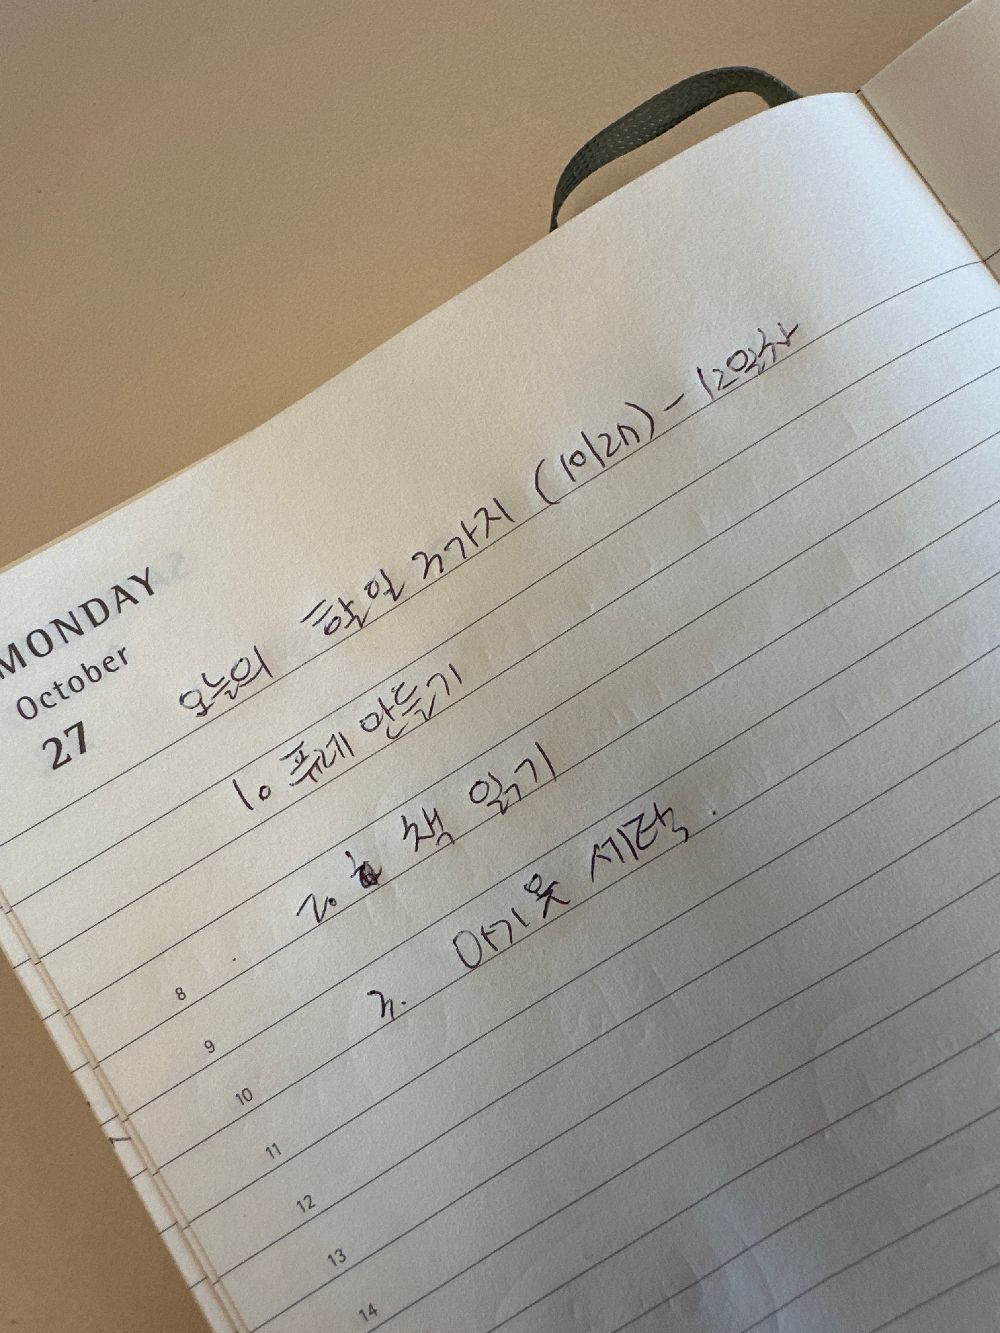 MONDAY
October
27
오늘의 할일 3가지
1. 퓨레 만들기
2. 책 읽기
3. 아기옷 세탁.
8
9
10
11
12
13
14